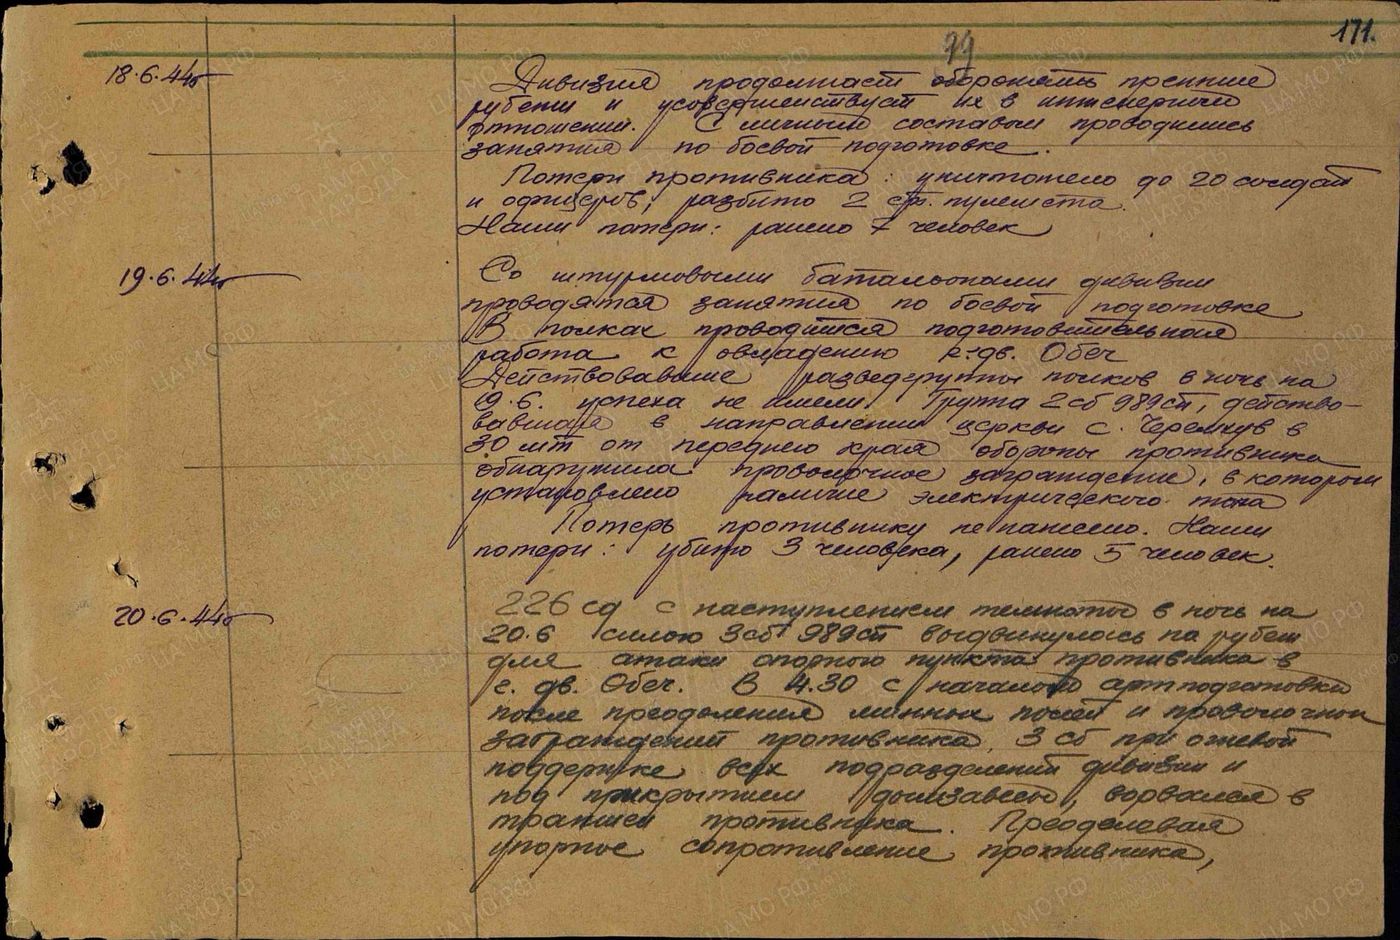 171.
99
18.6.44г
Дивизия продолжает оборонять прежние
рубежи и усовершенствует их в инженерном
отношении. С личным составом проводились
занятия по боевой подготовке.
Потери противника: уничтожено до 20 солдат
и офицеров, разбито 2 ст. пулемета.
Наши потери: ранено 7 человек
19.6.44г
Со штурмовыми батальонами дивизии
проводятся занятия по боевой подготовке
В полках проводится подготовительная
работа к овладению г. дв. Обеч
Действовавшие разведгруппы полков в ночь на
19.6. успеха не имели. Группа 2 сб 989 сп, действо-
вавшая в направлении церкви с. Черемхув в
30 мт от переднего края обороны противника
обнаружила проволочное заграждение, в котором
установлено наличие электрического тока
Потерь противнику не нанесено. Наши
потери: убито 3 человека, ранено 5 человек.
20.6.44г
226 сд с наступлением темноты в ночь на
20.6 силою 3 сб 989 сп выдвинулась на рубеж
для атаки опорного пункта противника в
г. дв. Обеч. В 4.30 с началом артподготовки
после преодоления минных полей и проволочных
заграждений противника, 3 сб при огневой
поддержке всех подразделений дивизии и
под прикрытием дымзавесы, ворвался в
траншеи противника. Преодолевая
упорное сопротивление противника,